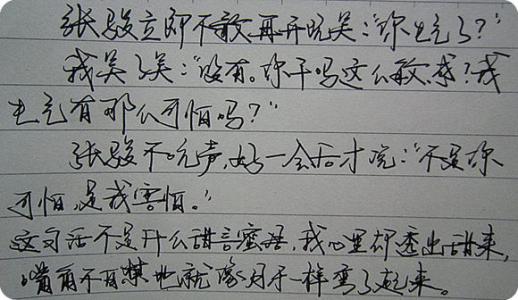 张骏立即不敢再开玩笑:“你生气了?”
我笑了笑:“没有。你干吗这么敏感?我
生气有那么可怕吗?”
张骏不吭声,好一会后才说:“不是你
可怕,是我害怕。”
这句话不是什么甜言蜜语,我心里却透出甜来,
嘴角不自禁地就像月牙一样弯了起来。